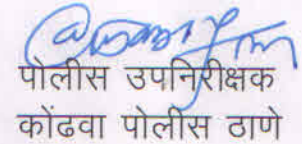 पोलीस उपनिरीक्षक
कोंढवा पोलीस ठाणे